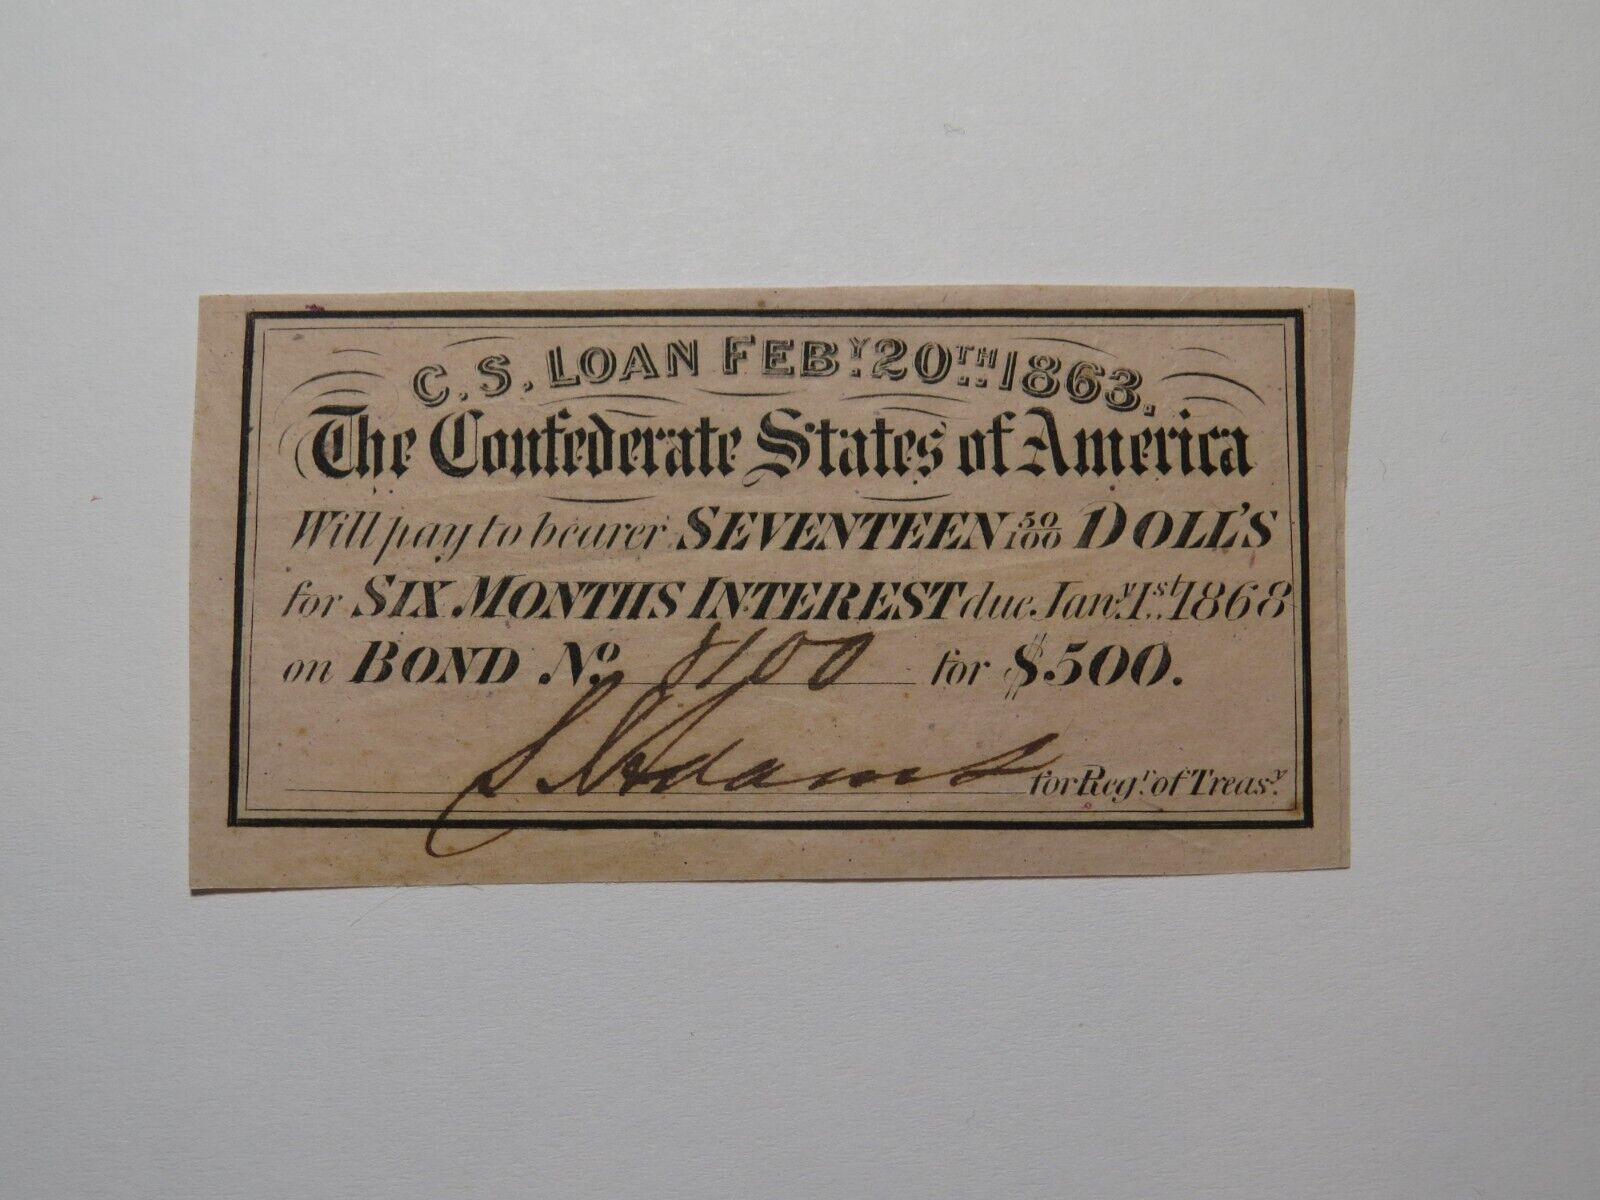 C. S. LOAN FEBY. 20TH. 1863.
The Confederate States of America
Will pay to bearer SEVENTEEN 50/100 DOLL'S
for SIX MONTHS INTEREST due Jany. 1st. 1868
on BOND No. 8100 for $500.
Adams for Regr. of Treasy.